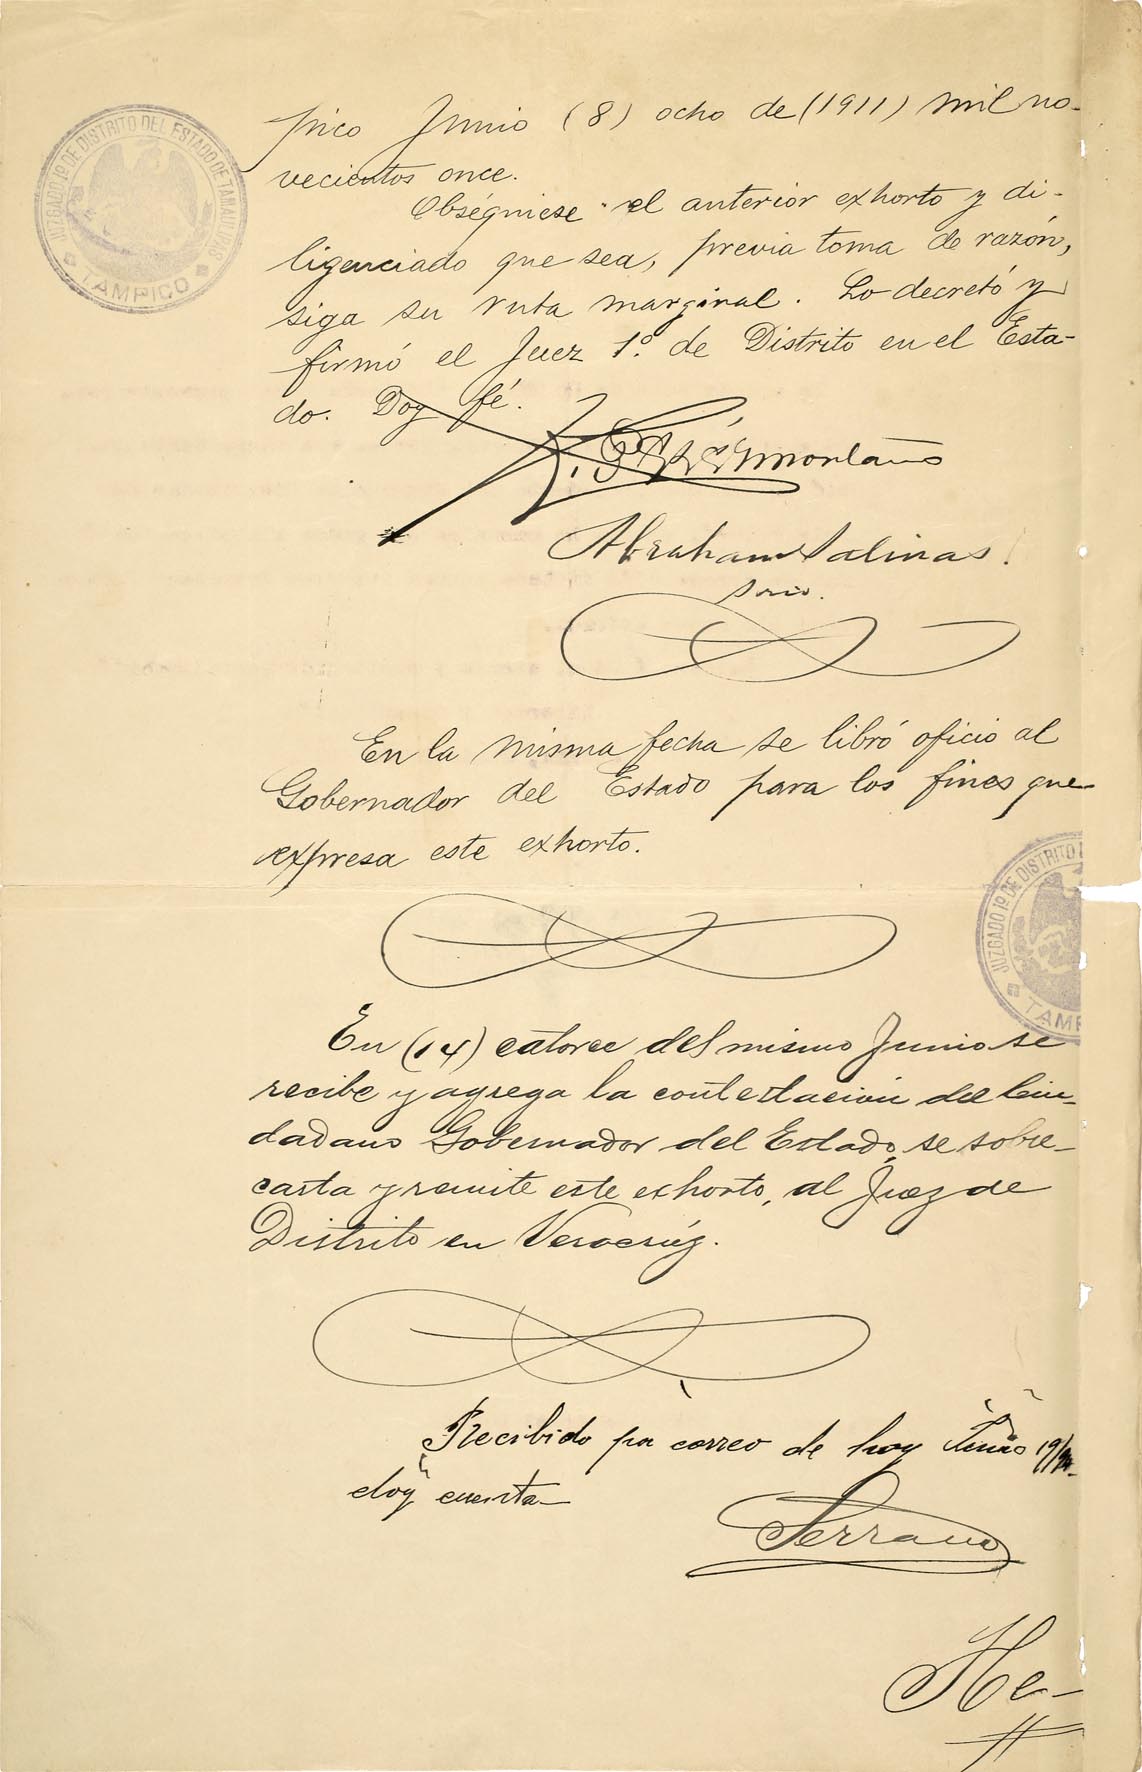 JUZGADO 1º DE DISTRITO DEL ESTADO DE TAMAULIPAS
TAMPICO
pico Junio (8) ocho de (1911) mil no-
vecientos once.
Obséquiese el anterior exhorto y di-
ligenciado que sea, previa toma de razón,
siga su ruta marginal. Lo decretó y
firmó el Juez 1º. de Distrito en el Esta-
do. Doy fé.
Abraham Salinas.
Srio.
En la misma fecha se libró oficio al
Gobernador del Estado para los fines que
expresa este exhorto.
JUZGADO 1º DE DISTRITO
TAMP
En (14) catorce del mismo Junio se
recibe y agrega la contestación del Ciu-
dadano Gobernador del Estado, se sobre-
carta y remite este exhorto, al Juez de
Distrito en Veracrúz.
Recibido por correo de hoy Junio 19/
doy cuenta—
Serrano
He-